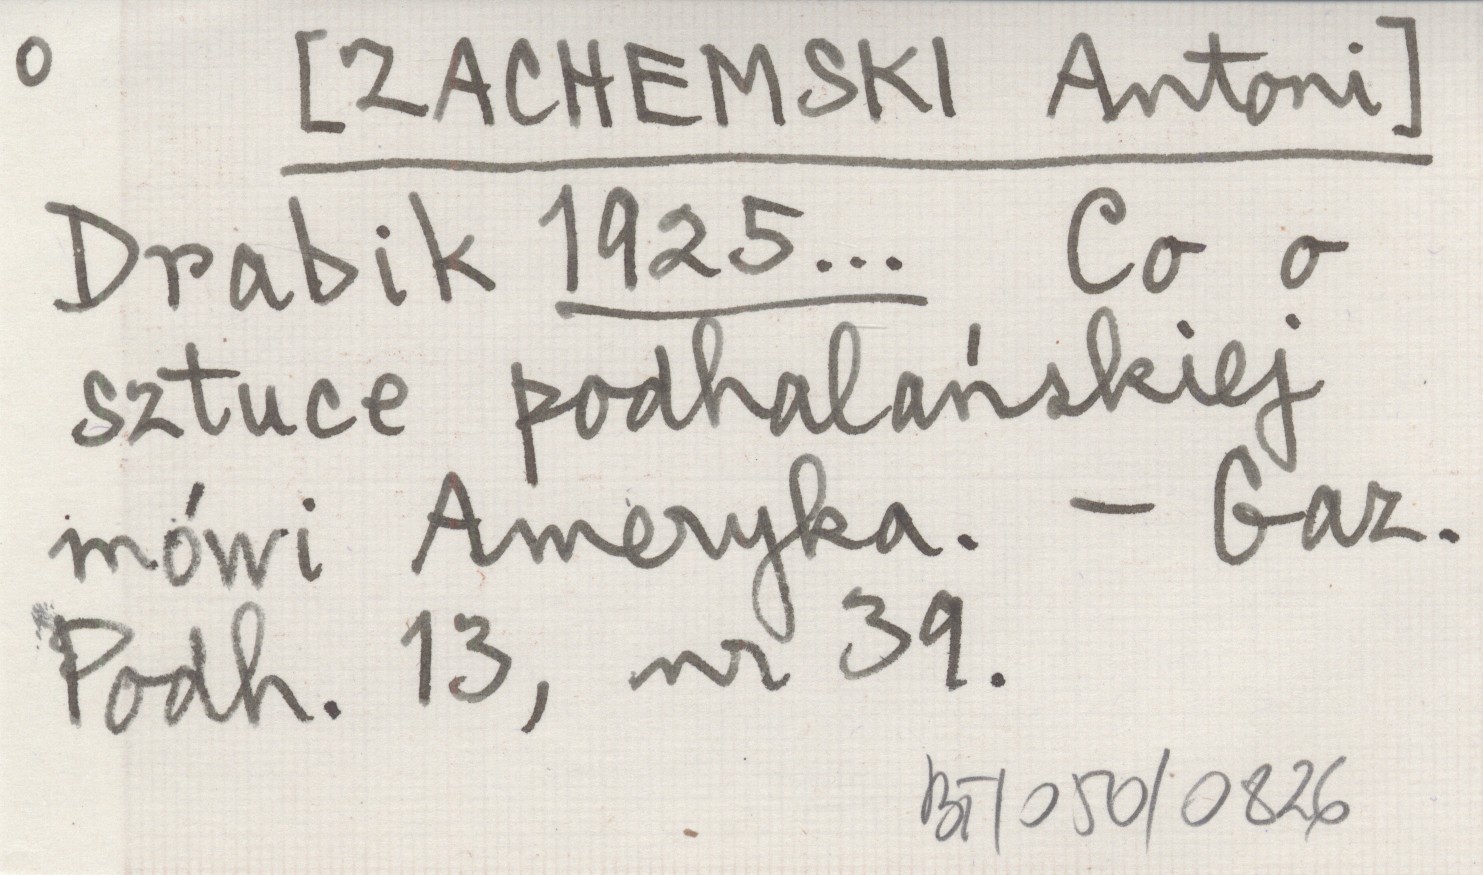 o [ZACHEMSKI Antoni]
Drabik 1925... Co o
sztuce podhalańskiej
mówi Ameryka. – Gaz.
Podh. 13, nr 39.
BT/050/0826